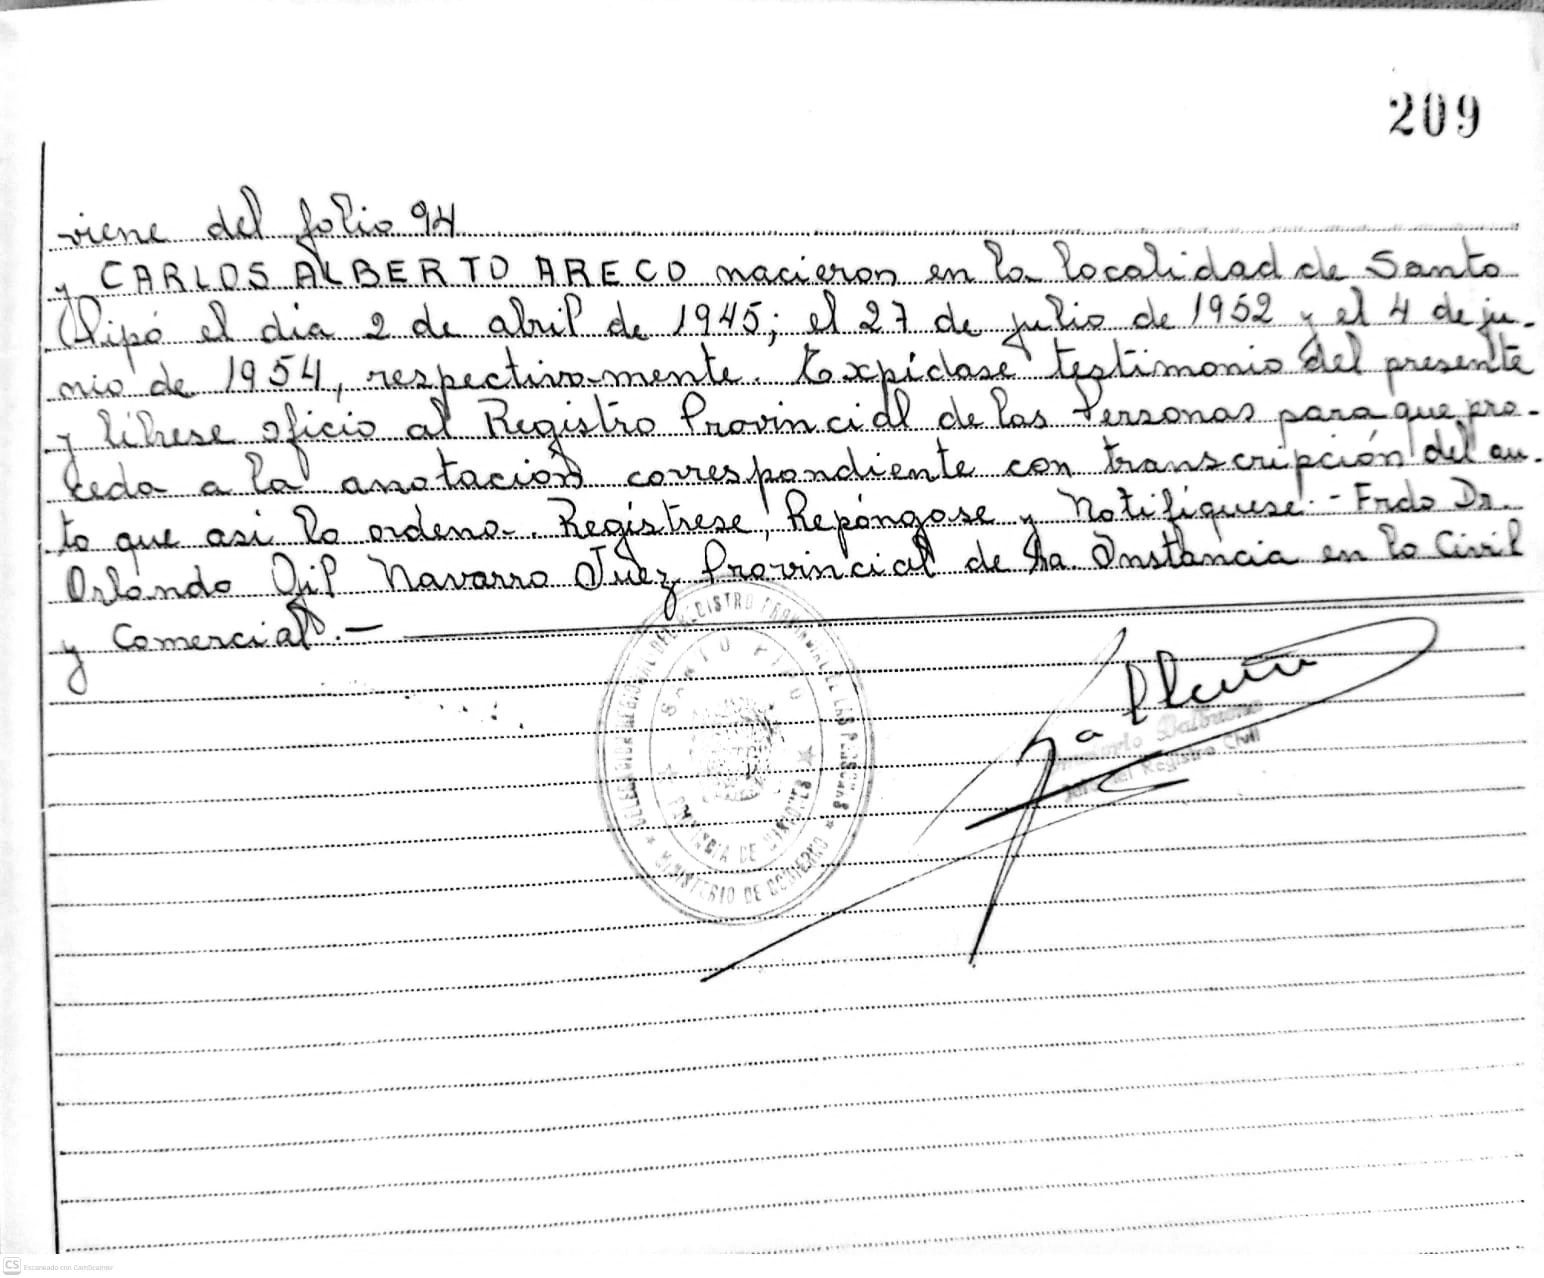 209
viene del folio 94
y CARLOS ALBERTO ARECO nacieron en la localidad de Santo
Pipó el dia 2 de abril de 1945; el 27 de julio de 1952 y el 4 de ju-
nio de 1954, respectivamente. Expídase testimonio del presente
y líbrese oficio al Registro Provincial de las Personas para que pro-
ceda a la anotación correspondiente con transcripción del au-
to que asi lo ordena. Regístrese, Repóngase y Notifíquese.- Frdo Dr.
Orlando Gil Navarro Juez Provincial de 1ra. Instancia en lo Civil
y Comercial.-
DELEGACION REGIONAL DEL REGISTRO PROVINCIAL DE LAS PERSONAS
SANTO PIPO
PROVINCIA DE MISIONES
MINISTERIO DE GOBIERNO
Balbuena
Jefe del Registro Civil
CS Escaneado con CamScanner